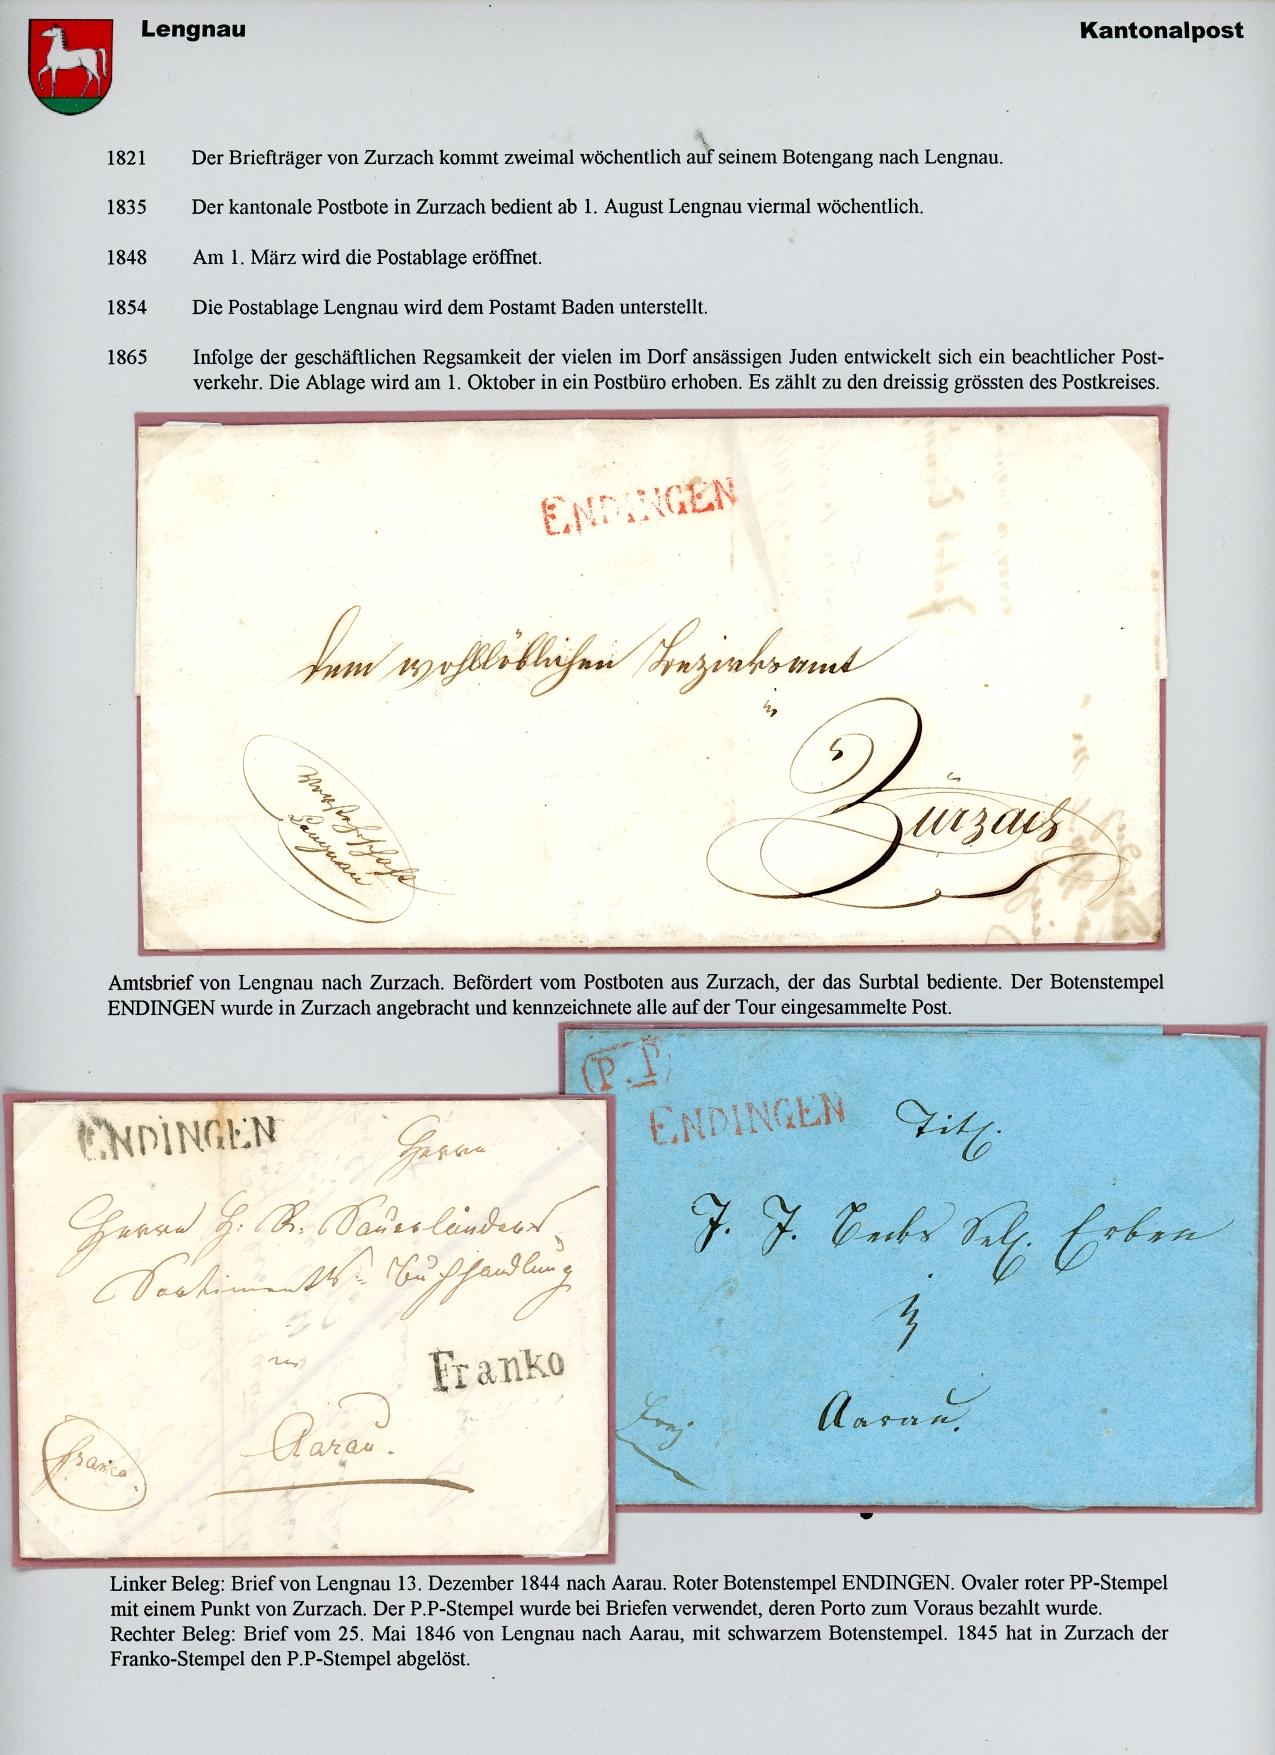 Lengnau
Kantonalpost
1821 Der Briefträger von Zurzach kommt zweimal wöchentlich auf seinem Botengang nach Lengnau.
1835 Der kantonale Postbote in Zurzach bedient ab 1. August Lengnau viermal wöchentlich.
1848 Am 1. März wird die Postablage eröffnet.
1854 Die Postablage Lengnau wird dem Postamt Baden unterstellt.
1865 Infolge der geschäftlichen Regsamkeit der vielen im Dorf ansässigen Juden entwickelt sich ein beachtlicher Post-
verkehr. Die Ablage wird am 1. Oktober in ein Postbüro erhoben. Es zählt zu den dreissig grössten des Postkreises.
ENDINGEN
dem wohllöblichen Bezirksamt
in
Zürzach
Vorsteherschaft
Lengnau
Amtsbrief von Lengnau nach Zurzach. Befördert vom Postboten aus Zurzach, der das Surbtal bediente. Der Botenstempel
ENDINGEN wurde in Zurzach angebracht und kennzeichnete alle auf der Tour eingesammelte Post.
P.P
ENDINGEN
Titl.
J. J. Becks Sel. Erben
Aarau.
ENDINGEN
Herrn
Herrn H. R. Sauerländers
Sortiments-Buchhandlung
in
Franko
Aarau.
franco.
Linker Beleg: Brief von Lengnau 13. Dezember 1844 nach Aarau. Roter Botenstempel ENDINGEN. Ovaler roter PP-Stempel
mit einem Punkt von Zurzach. Der P.P-Stempel wurde bei Briefen verwendet, deren Porto zum Voraus bezahlt wurde.
Rechter Beleg: Brief vom 25. Mai 1846 von Lengnau nach Aarau, mit schwarzem Botenstempel. 1845 hat in Zurzach der
Franko-Stempel den P.P-Stempel abgelöst.